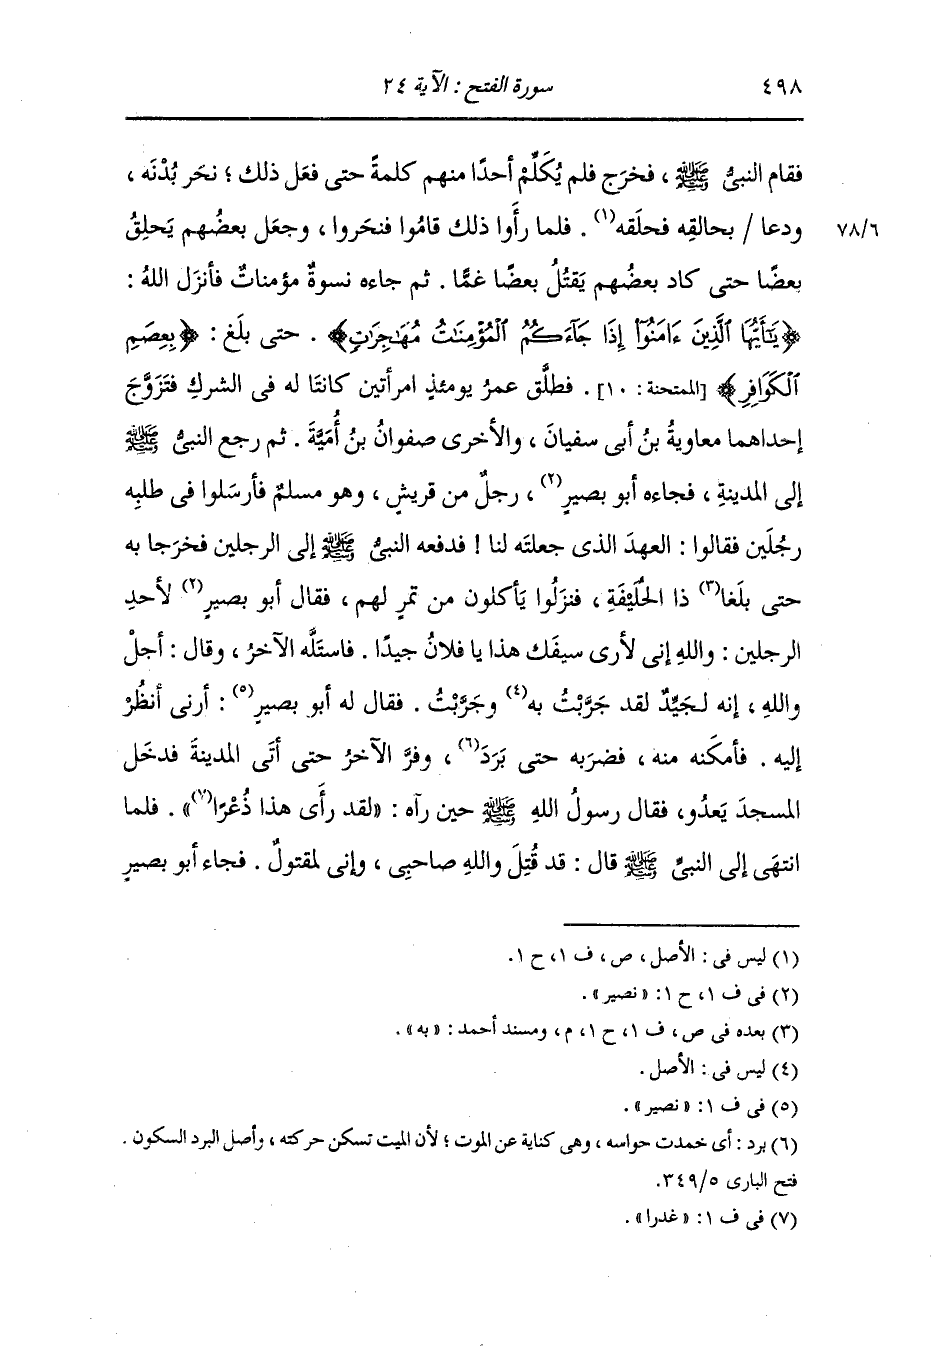 ٤٩٨ سورة الفتح : الآية ٢٤
فقام النبىُّ ﷺ ، فخرَج فلم يُكَلِّمْ أحدًا منهم كلمةً حتى فعَل ذلك ؛ نحَر بُدْنَه ،
٧٨/٦ ودعا / بحالقِه فحلَقه(١) . فلما رأَوا ذلك قامُوا فنحَروا ، وجعَل بعضُهم يَحلِقُ
بعضًا حتى كاد بعضُهم يَقتُلُ بعضًا غمًّا . ثم جاءه نسوةٌ مؤمناتٌ فأنزَل اللهُ :
﴿يَٰٓأَيُّهَا ٱلَّذِينَ ءَامَنُوٓا۟ إِذَا جَآءَكُمُ ٱلْمُؤْمِنَٰتُ مُهَٰجِرَٰتٍ﴾ . حتى بلَغ : ﴿بِعِصَمِ
ٱلْكَوَافِرِ﴾ [الممتحنة : ١٠] . فطلَّق عمرُ يومئذٍ امرأتين كانتَا له فى الشركِ فتَزوَّجَ
إحداهما معاويةُ بنُ أبى سفيانَ ، والأخرى صفوانُ بنُ أُمَيَّةَ . ثم رجع النبىُّ ﷺ
إلى المدينةِ ، فجاءه أبو بصيرٍ(٢) ، رجلٌ من قريشٍ ، وهو مسلمٌ فأرسَلوا فى طلبِه
رجُلَين فقالوا : العهدَ الذى جعلتَه لنا ! فدفعه النبىُّ ﷺ إلى الرجلين فخرَجا به
حتى بلَغا(٣) ذا الحُلَيْفَةِ ، فنزَلُوا يَأكلون من تمرٍ لهم ، فقال أبو بصيرٍ(٢) لأحدِ
الرجلين : واللهِ إنى لأرى سيفَك هذا يا فلانُ جيدًا . فاستَلَّه الآخرُ ، وقال : أجلْ
واللهِ ، إنه لَجيِّدٌ لقد جَرَّبْتُ به(٤) وجَرَّبْتُ . فقال له أبو بصيرٍ(٥) : أرنى أنظُرْ
إليه . فأمكَنه منه ، فضرَبه حتى بَرَدَ(٦) ، وفرَّ الآخرُ حتى أتَى المدينةَ فدخَل
المسجدَ يَعدُو، فقال رسولُ اللهِ ﷺ حين رآه : «لقد رأَى هذا ذُعْرًا(٧)» . فلما
انتهَى إلى النبىِّ ﷺ قال : قد قُتِلَ واللهِ صاحبِى ، وإنى لمقتولٌ . فجاء أبو بصيرٍ
(١) ليس فى : الأصل ، ص ، ف ١، ح ١.
(٢) فى ف ١، ح ١: « نصير » .
(٣) بعده فى ص ، ف ١، ح ١، م ، ومسند أحمد : « به » .
(٤) ليس فى : الأصل .
(٥) فى ف ١: « نصير » .
(٦) برد : أى خمدت حواسه ، وهى كناية عن الموت ؛ لأن الميت تسكن حركته ، وأصل البرد السكون .
فتح البارى ٣٤٩/٥.
(٧) فى ف ١: « غدرا » .